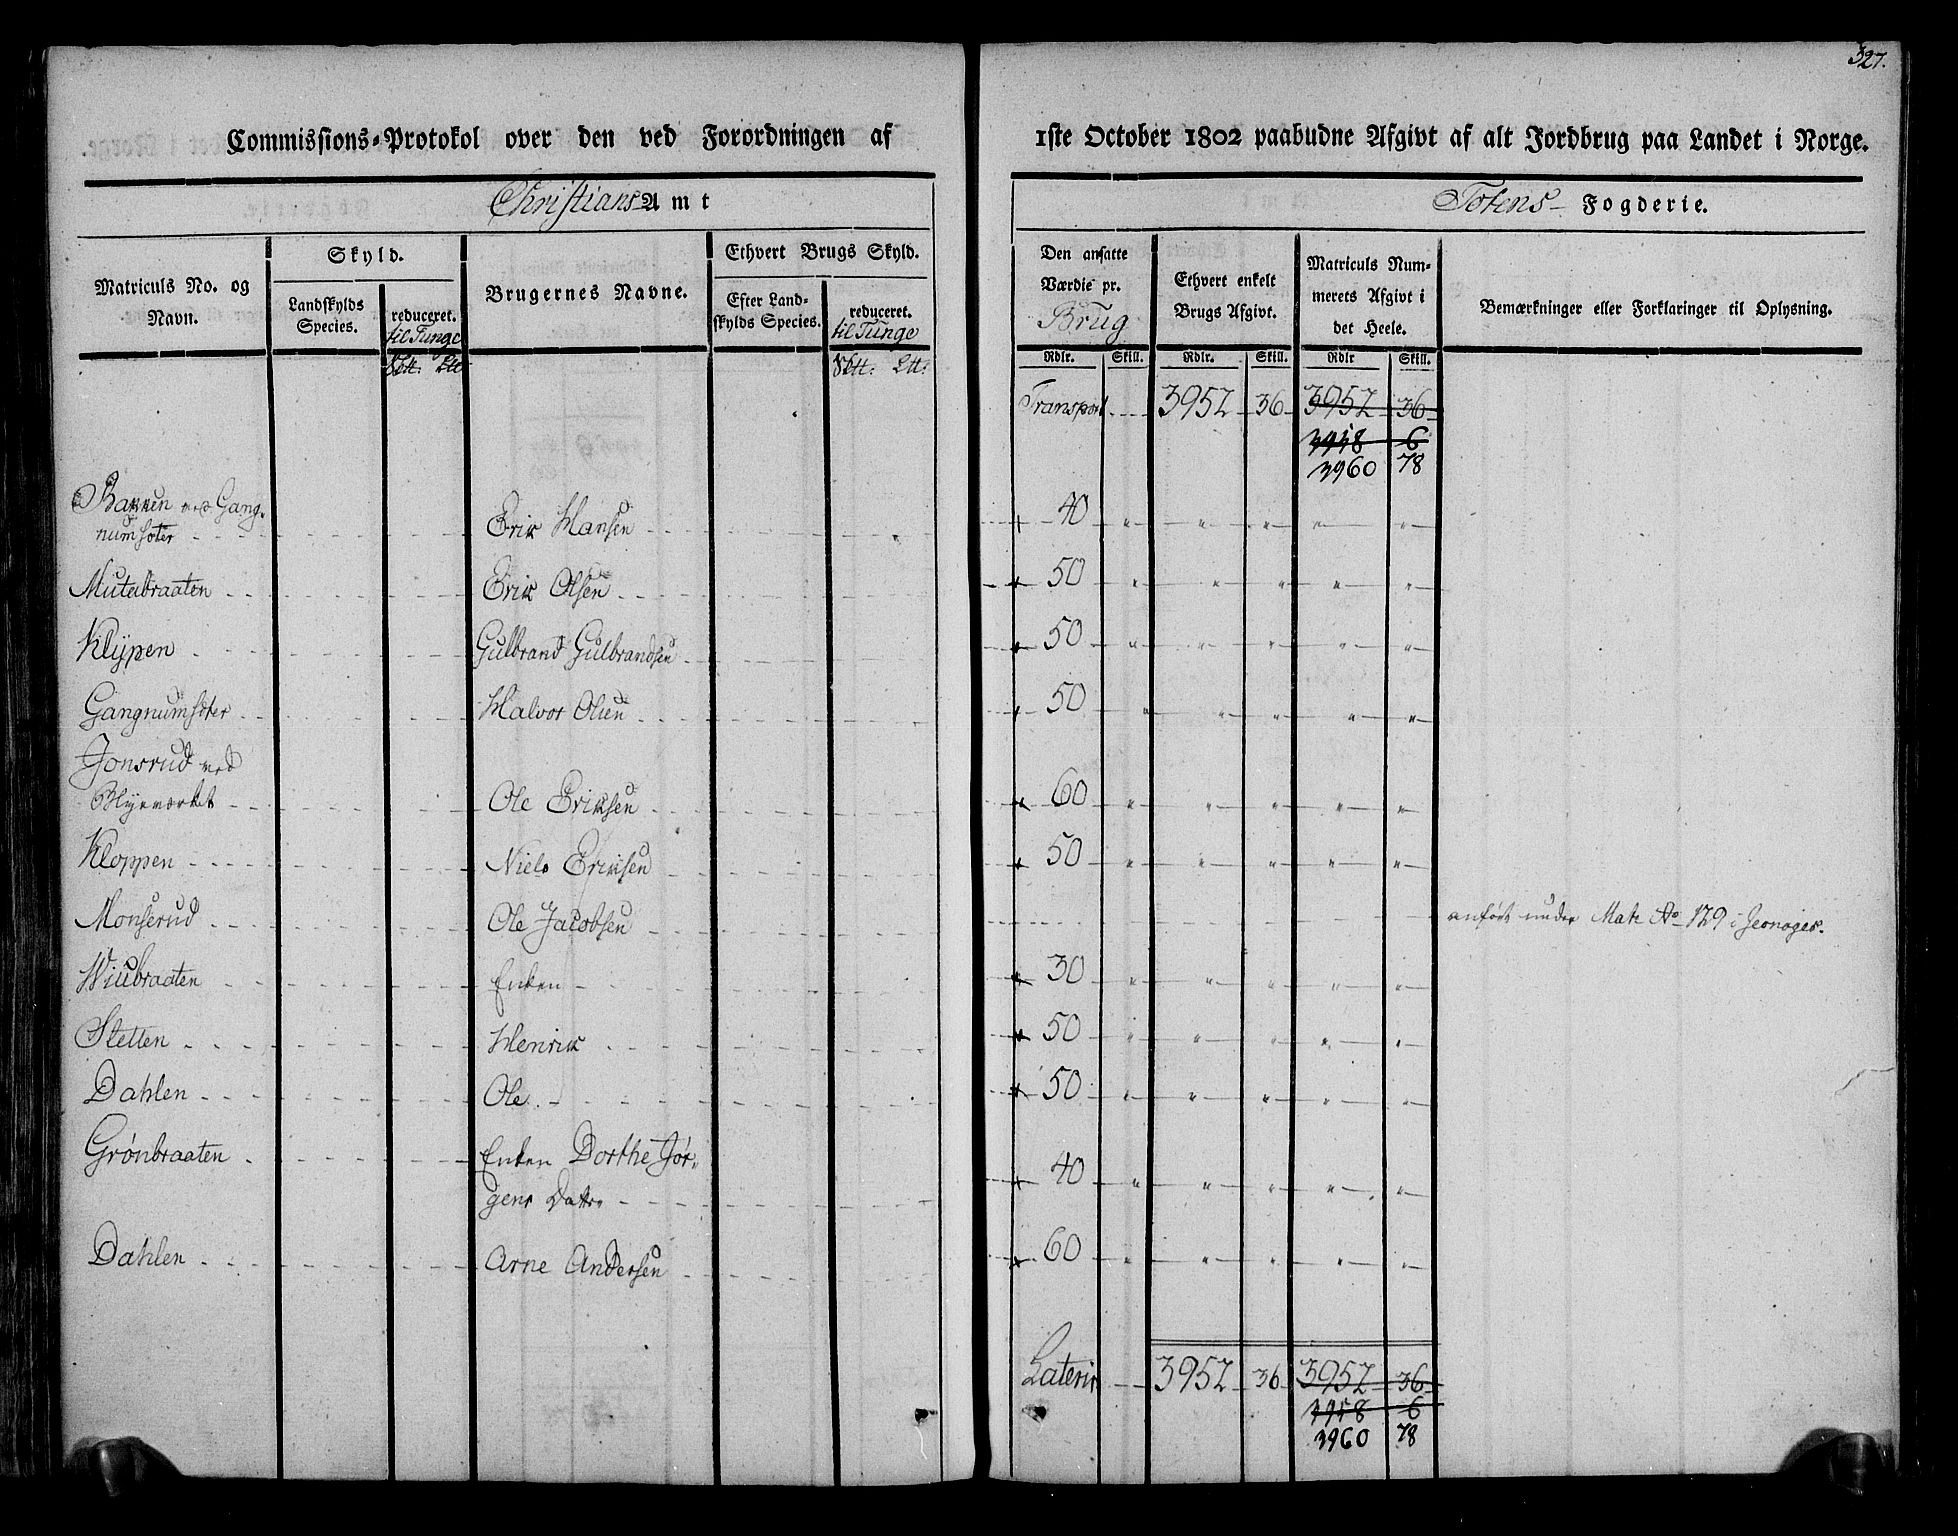 327.
Commissions-Protokol over den ved Forordningen af 1ste October 1802 paabudne Afgivt af alt Jordbrug paa Landet i Norge.
Christians Amt
Totens Fogderie.
Matriculs No. og Navn.
Skyld.
Landskylds Species.
reduceret. til Tunge
Brugernes Navne.
Ethvert Brugs Skyld.
Efter Landskylds Species.
reduceret. til Tunge
Den ansatte Værdie pr. Brug
Ethvert enkelt Brugs Afgivt.
Matriculs Nummerets Afgivt i det Heele.
Bemærkninger eller Forklaringer til Oplysning.
Rdlr. Skill. Rdlr. Skill. Rdlr Skill.
Transport 3952 36 3952 36
3958 6
3960 78
Bakken ved Gangnumsæter Erik Hansen 40
Mutabraaten Erik Olsen 50
Klypen Gulbrand Gulbrandsen 50
Gangnumsæter Halvor Olsen 50
Jonsrud ved
Blyeværket Ole Eriksen 60
Kloppen Niels Eriksen 50
Monserud Ole Jacobsen anført under Matr No 129 i
Wiubraaten Enken 30
Sletten Henrik 50
Dahlen Ole 50
Grønbraaten Enken Dorthe Jørgens Datter 40
Dahlen Arne Andersen 60
Lateris 3952 36 3952 36
3958 6
3960 78